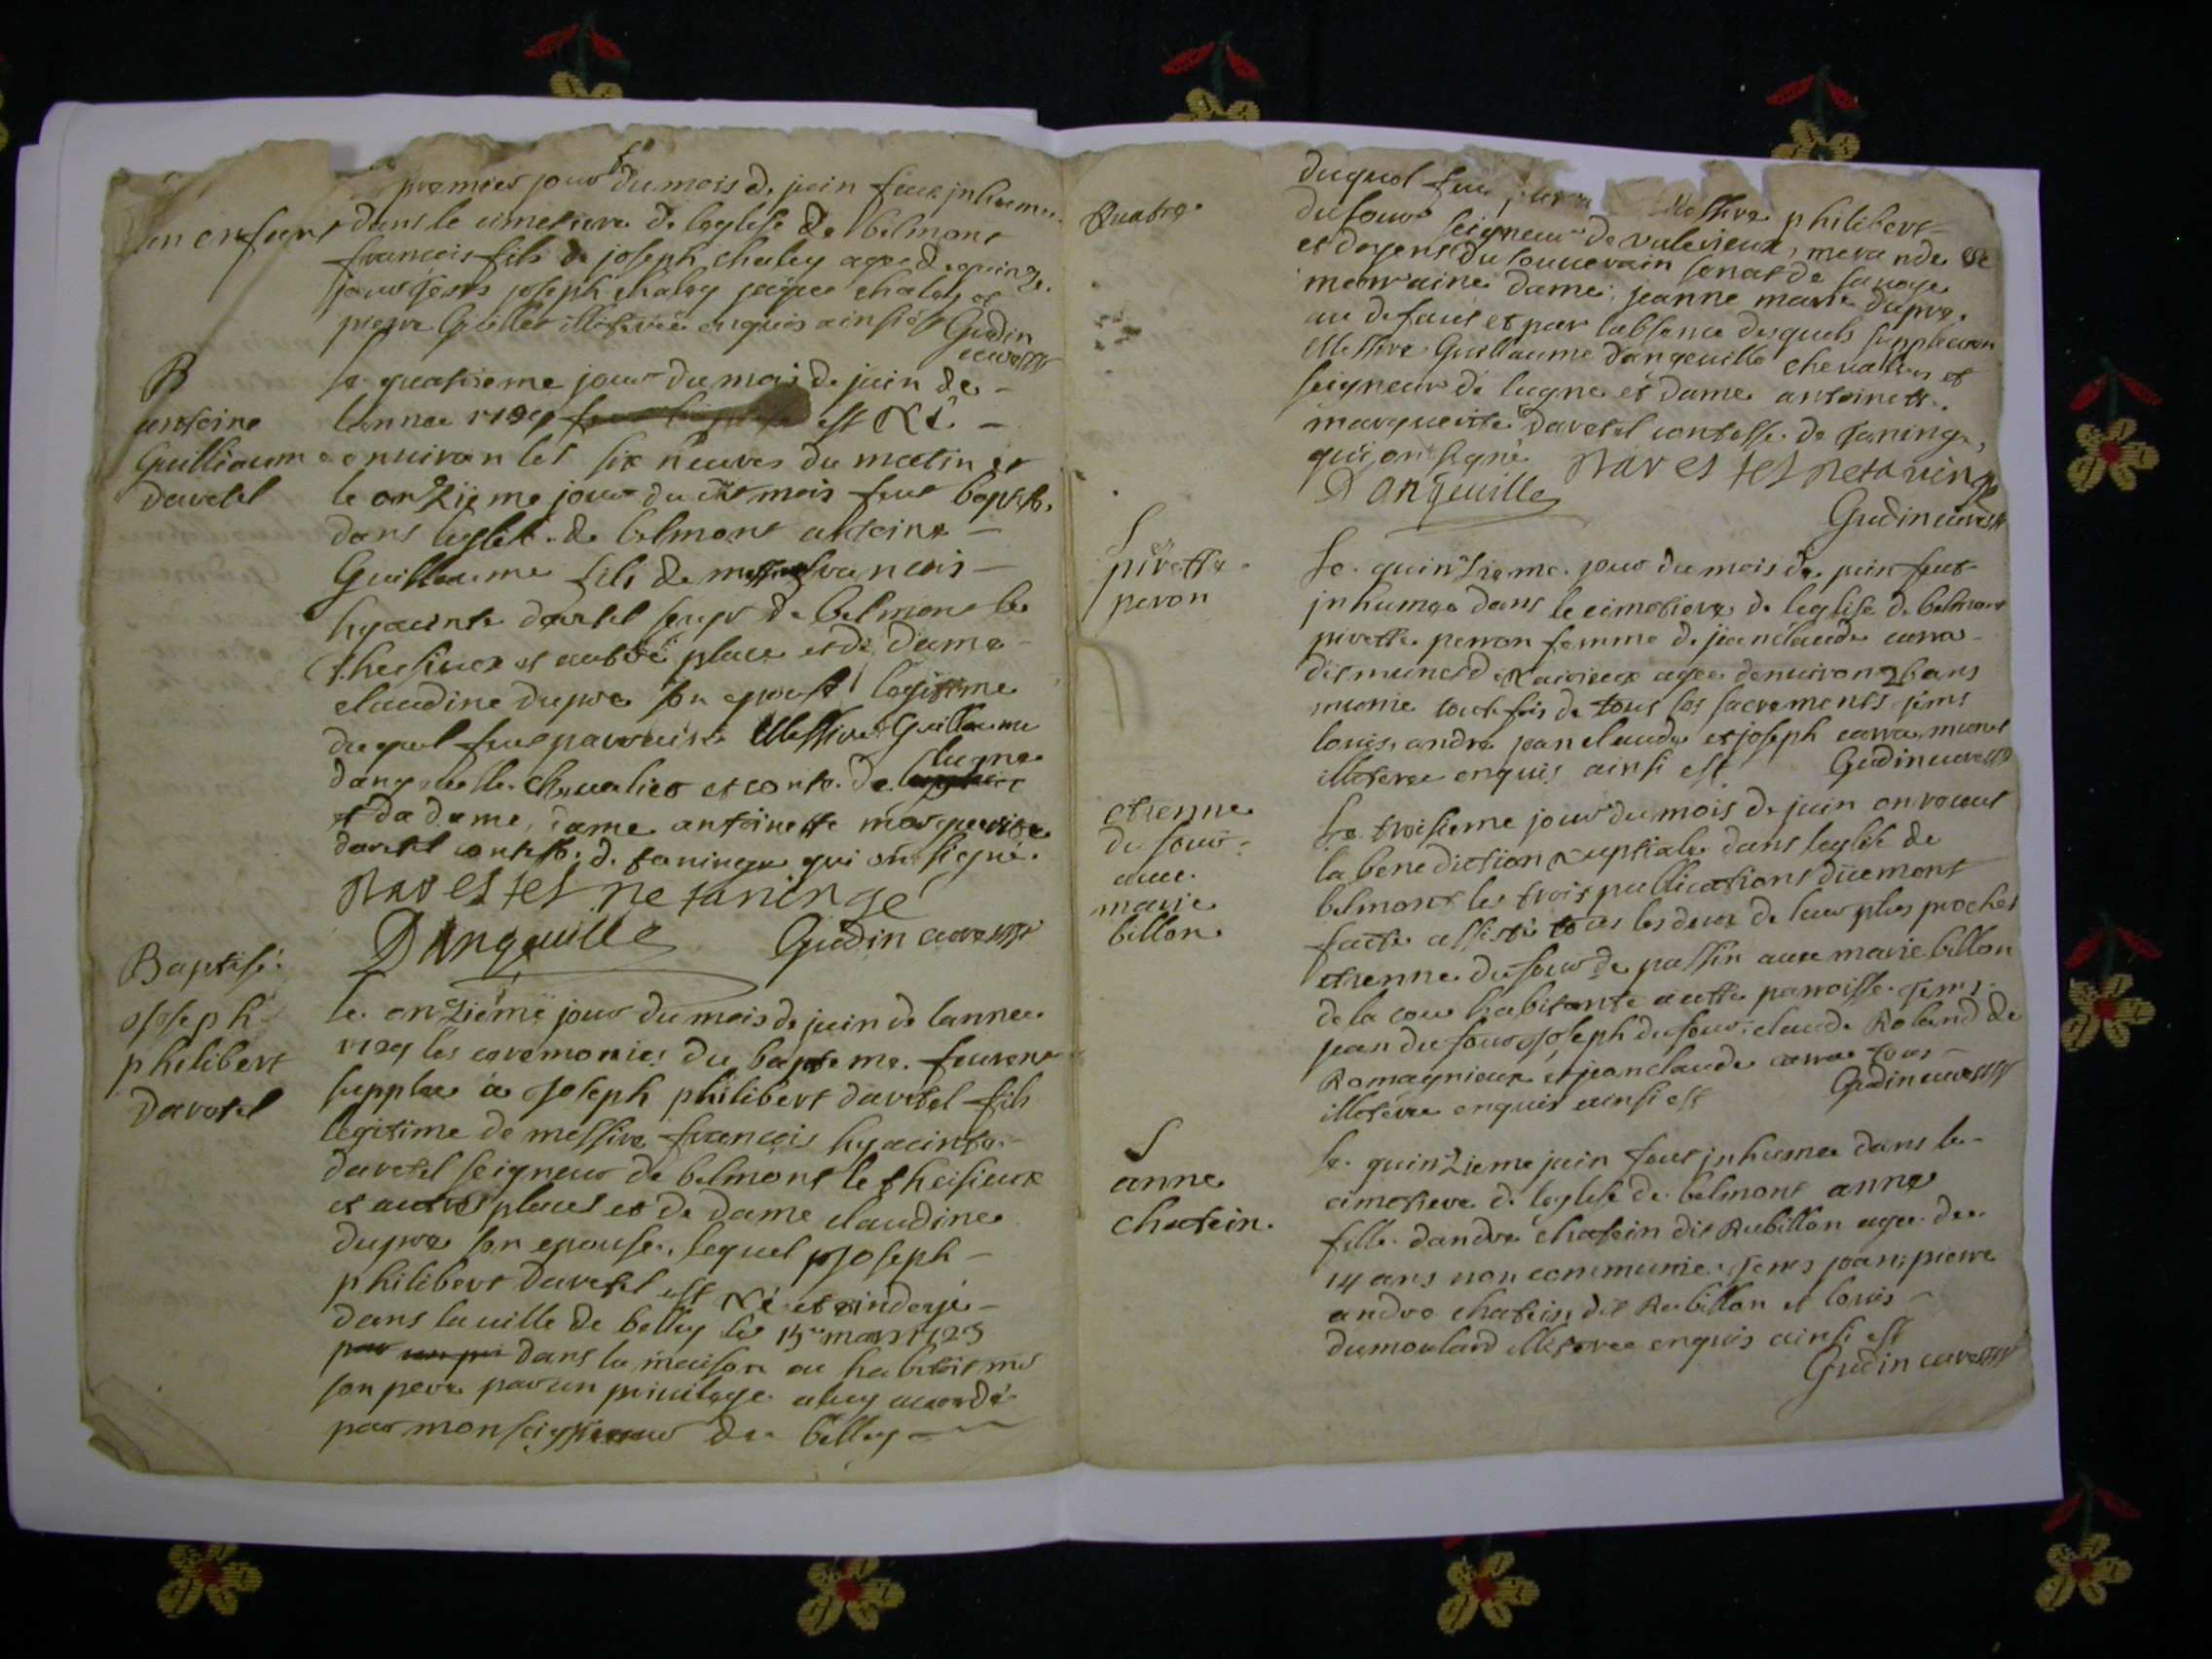 premier jour du mois de juin feut jnhumé
un enfant
dans le cimetiere de leglise de belmont
francois fils de joseph chaley agee de quinze
jour joseph chaley chaley et
pierre Guillet illiteree enquis ainsi est Gudin
B
antoine
Guilliaume
Davetel
le quatrieme jour du mois de juin de
lannee est Né
enuiron les six heures du matin et
le onzieme jour du dit mois feut baptise
dans leglise de belmont antoine
Guillaume fils de messire francois
hyacinte davetel seigr de belmont le
et autre place et de dame
claudine dupre son epouse legitime
duquel feut Messire Guillaume
chevalier et conte de lugne
et da dame, dame antoinette marguerite
davetel contesse de taninge qui ont signé
Davestel ne taninge
Dangeuille Gudin cure
Baptisé
joseph
philibert
Davetel
le onzieme jour du mois de juin de lannee
les ceremonies du bapteme feurent
supplee a Joseph philibert davetel fils
legitime de messire francois hyacinte
davetel seigneur de belmont le
et autres places et de dame claudine
dupre son epouse, lequel Joseph
philibert davetel est Né et ondoyé
dans la uille de belley le 15 mars
dans la maison ou habitoit
son pere par un priuilege a luy accordé
par monseigneur de belley
Quatre
duquel feut Messire philibert
dufour seigneur de valerieux,
et doyens du souuerain senat de sauoye
marraine dame jeanne marie dupre
au defaut et par labsence desquels
Messire Guillaume dangeuille cheualier et
seigneur de lugne et dame antoinette
marguerite davetel contesse de taninge,
qui ont signé Davestel ne taninge
Dangeuille
Gudin cure
S
pirette
peron
le quinzieme jour du mois de juin feut
jnhumee dans le cimetiere de leglise de belmont
pirette perron femme de jean claude carra
dit munet de agee denuiron 26 ans
munie toutefois de tous les sacrements
louis, andre jean claude et joseph carra munet
illiteree enquis ainsi est Gudin cure
etienne
dufour
auec
marie
billon
le troisieme jour du mois de juin on receut
la benediction nuptiale dans leglise de
belmont les trois publications düement
faite assisté tous les deux de leur plus proches
etienne dufour de passin auec marie billon
de la cour habitante a cette parroisse
jean dufour joseph dufour claude Roland de
Romagnieux et jean claude carra tous
illiteree enquis ainsi est Gudin cure
S
anne
chatein
le quinzieme juin feut jnhumee dans le
cimetiere de leglise de belmont anne
fille dandre chatein dit Rubillon agee de
14 ans non communiee jean, pierre
andre chatein dit Rubillon et louis
dumoulard illiteree enquis ainsi est
Gudin cure